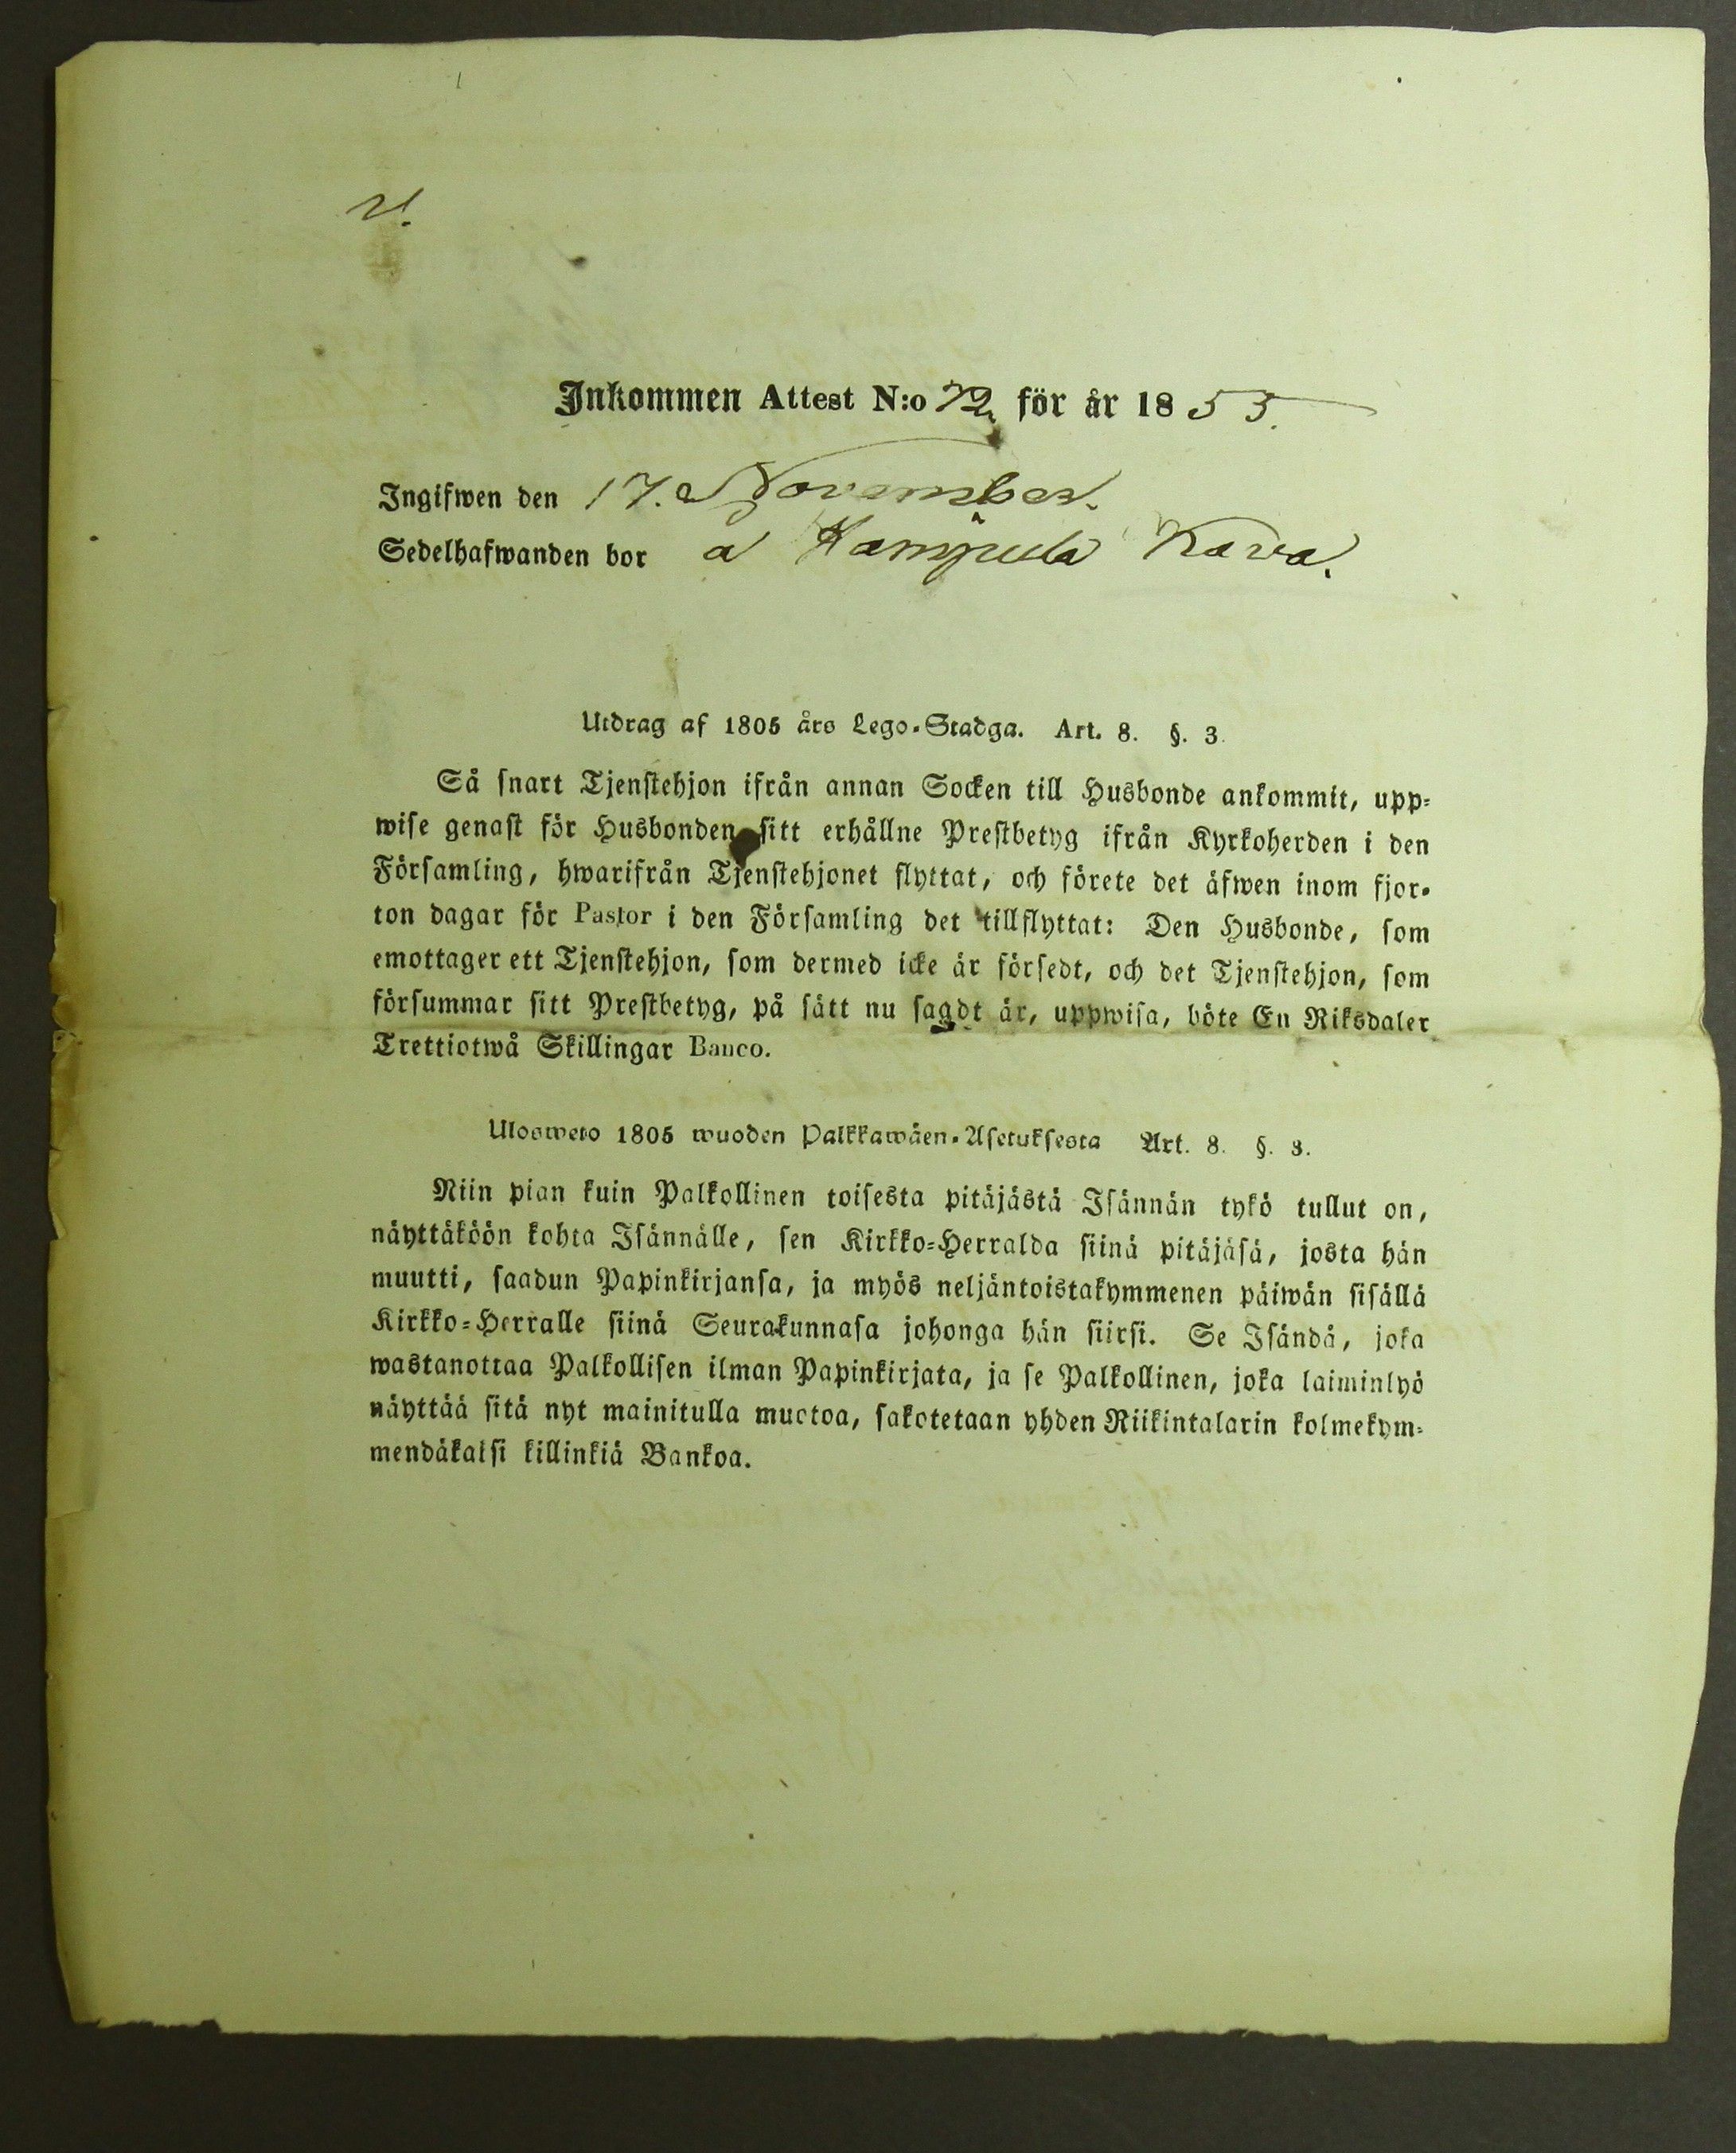 Inkommen Attest N:o 72 för år 1853.
Ingifwen den 17. November.
Sedelhafwanden bor å Kämpilä Kava.
Utdrag af 1805 års Lego-Stadga. Art. 8. §. 3.
Så snart Tjenstehjon ifrån annan Socken till Husbonde ankommit, upp-
wise genast för Husbonden sitt erhållne Prestbetyg ifrån Kyrkoherden i den
Församling, hwarifrån Tjenstehjonet flyttat, och förete det äfwen inom fjor-
ton dagar för Pastor i den Församling det tillflyttat: Den Husbonde, som
emottager ett Tjenstehjon, som dermed icke är försedt, och det Tjenstehjon, som
försummar sitt Prestbetyg, på sätt nu sagdt är, uppwisa, böte En Riksdaler
Trettiotwå Skillingar Banco.
Ulosweto 1805 wuoden Palkkawäen-Asetuksesta Art. 8. §. 3.
Niin pian kuin Palkollinen toisesta pitäjästä Isännän tykö tullut on,
näyttäköön kohta Isännälle, sen Kirkko-Herralda siinä pitäjäsä, josta hän
muutti, saadun Papinkirjansa, ja myös neljäntoistakymmenen päiwän sisällä
Kirkko-Herralle siinä Seurakunnasa johonga hän siirsi. Se Isändä, joka
wastanottaa Palkollisen ilman Papinkirjata, ja se Palkollinen, joka laiminlyö
näyttää sitä nyt mainitulla muotoa, sakotetaan yhden Riikintalarin kolmekym-
mendäkaksi killinkiä Bankoa.